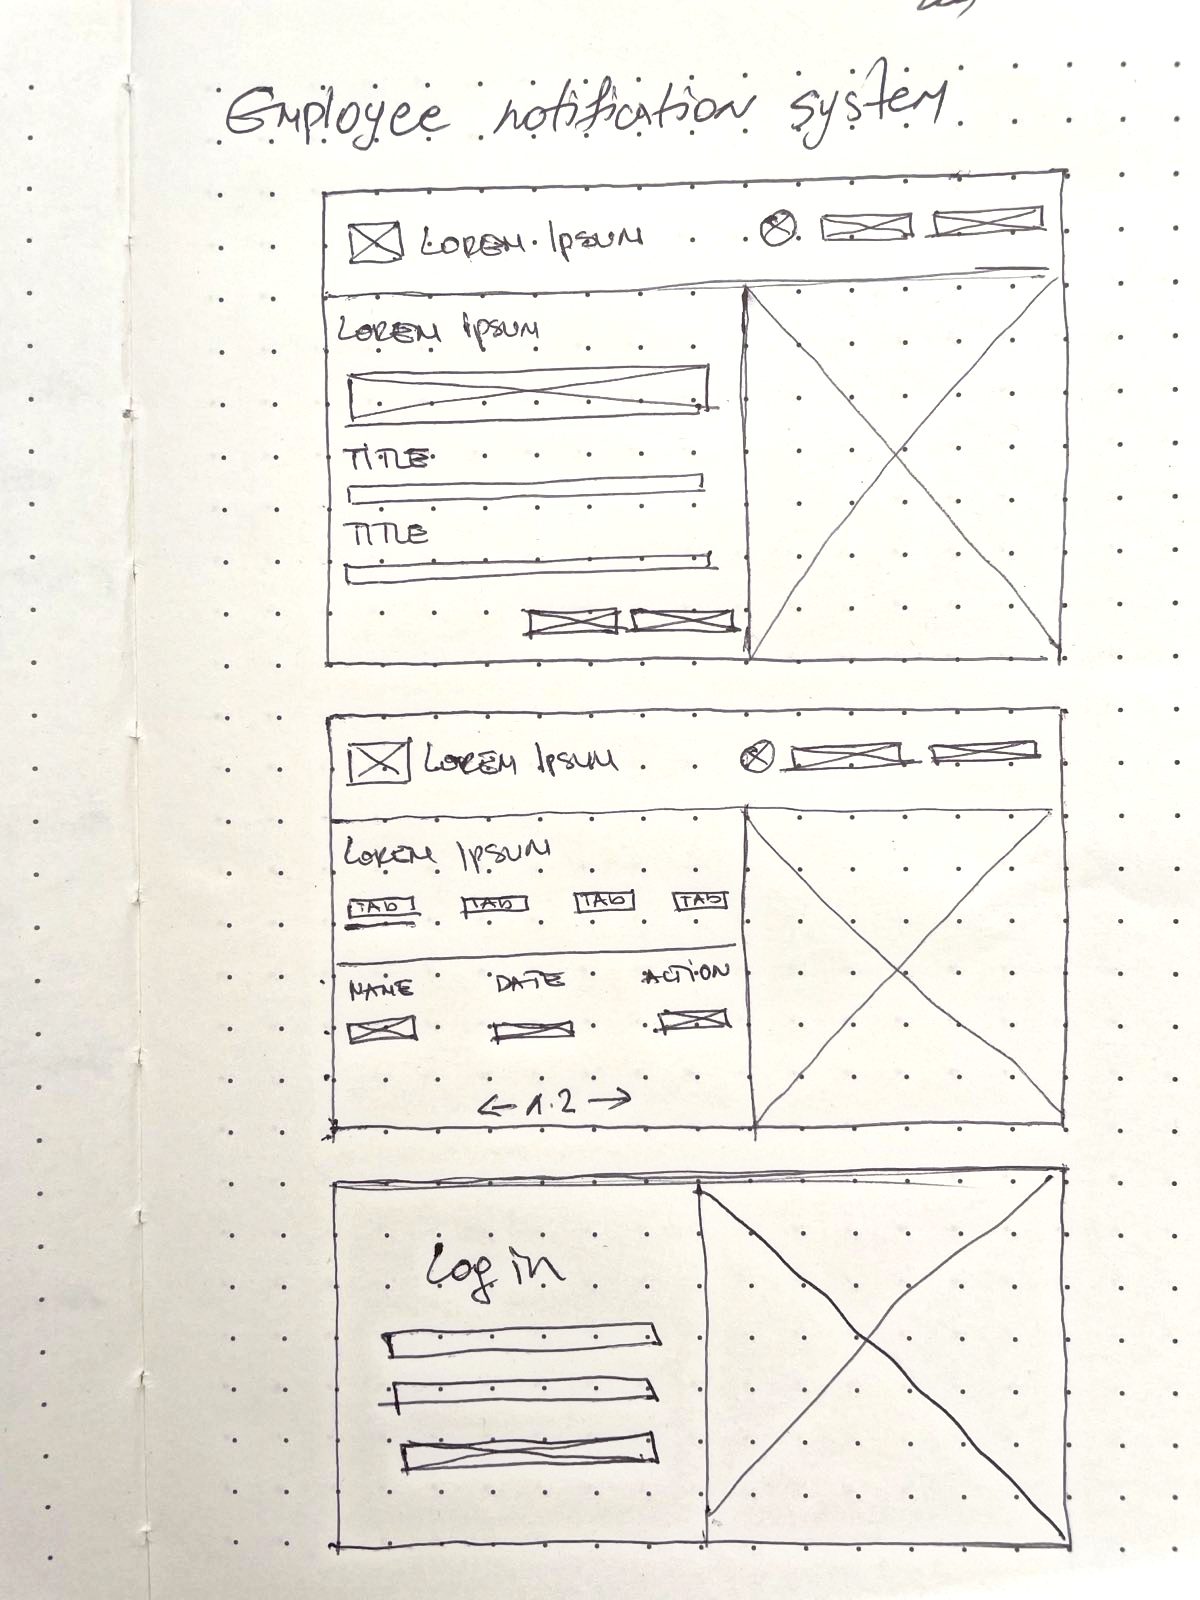 Employee notification system
LOREM IPSUM
LOREM IPSUM
TITLE
TITLE
LOREM IPSUM
LOREM IPSUM
TAB TAB TAB TAB
NAME DATE ACTION
← 1.2 →
Log in